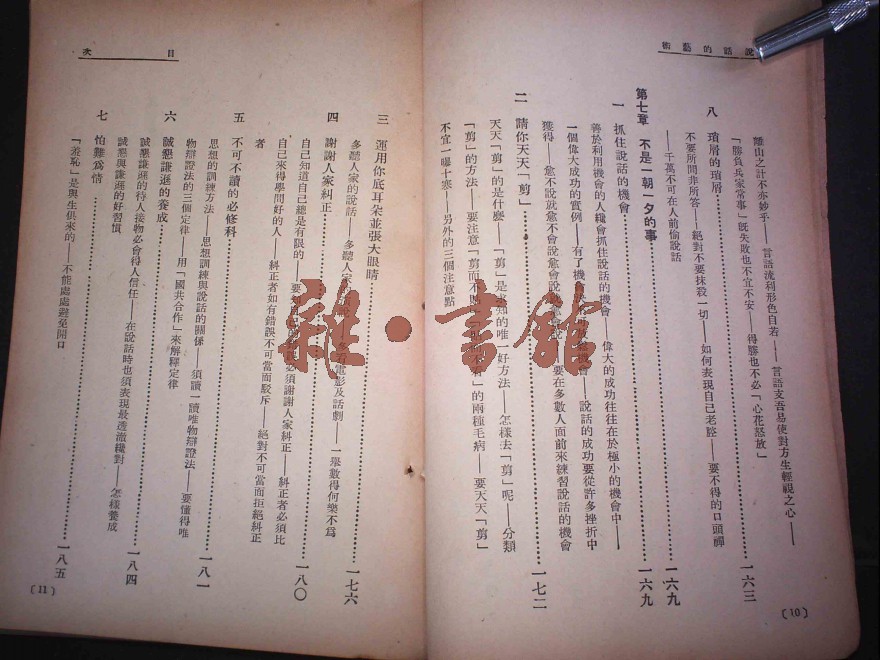 說話的藝術
離山之計不亦妙乎——言語流利形色自若——言語支吾易使對方生輕視之心——
「勝負兵家常事」旣失敗也不宜不安——得勝也不必「心花怒放」
八 瑣屑的瑣屑……一六三
不要所問非所答——絕對不要抹殺一切——如何表現自己老腔——要不得的口頭禪
——千萬不可在人前偷說話
第七章 不是一朝一夕的事……一六九
一 抓住說話的機會……一六九
善於利用機會的人纔會抓住說話的機會——偉大的成功往往在於極小的機會中——
一個偉大成功的實例——有了機會 機會——說話的成功要從許多挫折中
獲得——愈不說就愈不會說愈會說 要在多數人面前來練習說話的機會
二 請你天天「剪」……一七二
天天「剪」的是什麼——「剪」是求知的唯一好方法——怎樣去「剪」呢——分類
「剪」的方法——要注意「剪而不貼」 」的兩種毛病——要天天「剪」
不宜一曝十寒——另外的三個注意點
(10)
目 次
三 運用你底耳朵並張大眼睛……一七六
多聽人家的說話——多聽人家的 電影及話劇——一舉數得何樂不爲
四 謝謝人家糾正……一八〇
自己知道自己總是有限的——要 必須謝謝人家糾正——糾正者必須比
自己來得學問好的人——糾正者如有錯誤不可當面駁斥——絕對不可當面拒絕糾正
者
五 不可不讀的必修科……一八一
思想的訓練方法——思想訓練與說話的關係——須讀一讀唯物辯證法——要懂得唯
物辯證法的三個定律——用「國共合作」來解釋定律
六 誠懇謙遜的養成……一八四
誠懇謙遜的待人接物必會得人信任——在說話時也須表現最透澈纔對——怎樣養成
誠懇與謙遜的好習慣
七 怕難爲情……一八五
「羞恥」是與生俱來的——不能處處避免開口
(11)
雅·書館